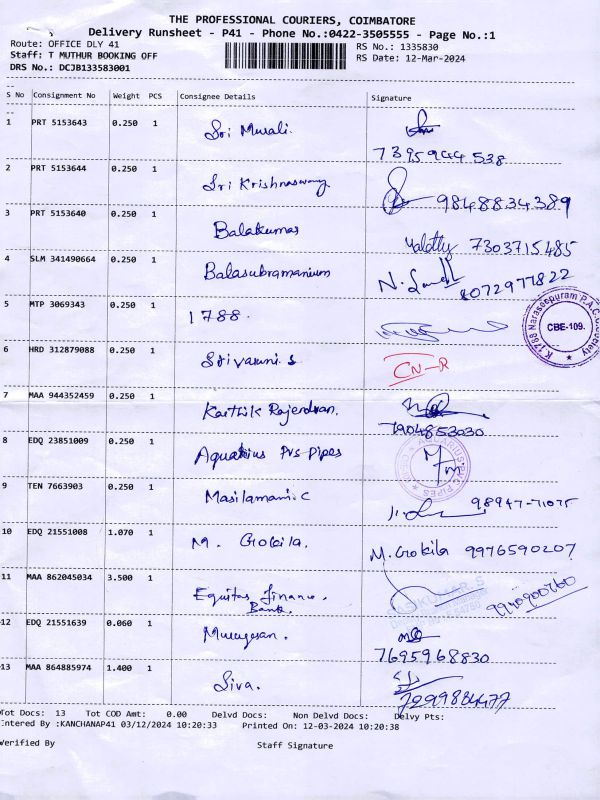 THE PROFESSIONAL COURIERS, COIMBATORE
Delivery Runsheet - P41 - Phone No.:0422-3505555 - Page No.:1
Route: OFFICE DLY 41 RS No.: 1335830
Staff: T MUTHUR BOOKING OFF RS Date: 12-Mar-2024
DRS No.: DCJB133583001
S No Consignment No Weight PCS Consignee Details Signature
1 PRT 5153643 0.250 1 Sri Murali.
7395944538
2 PRT 5153644 0.250 1 Sri Krishnaswamy
9848834389
3 PRT 5153640 0.250 1 Balakumar
7303715485
4 SLM 341490664 0.250 1 Balasubramanium
8072977822
5 MTP 3069343 0.250 1 1788.
K.1788 Narasepuram P.A.C.Society
CBE-109.
6 HRD 312879088 0.250 1 Srivaruni.s
CN-R
7 MAA 944352459 0.250 1 Karthik Rajendran.
7904853030
8 EDQ 23851009 0.250 1 Aquarius Pvs Pipes
AQUARIUS PVC PIPES
9 TEN 7663903 0.250 1 Masilamani.C
98947-71075
10 EDQ 21551008 1.070 1 M. Gokila. M. Gokila 9976590207
11 MAA 862045034 3.500 1 Equitas Finance.
Bank.
SASIKUMAR. S
9940900760
12 EDQ 21551639 0.060 1 Murugesan.
7695968830
13 MAA 864885974 1.400 1 Siva.
7299884477
Tot Docs: 13 Tot COD Amt: 0.00 Delvd Docs: Non Delvd Docs: Delvy Pts:
Entered By :KANCHANAP41 03/12/2024 10:20:33 Printed On: 12-03-2024 10:20:38
Verified By Staff Signature